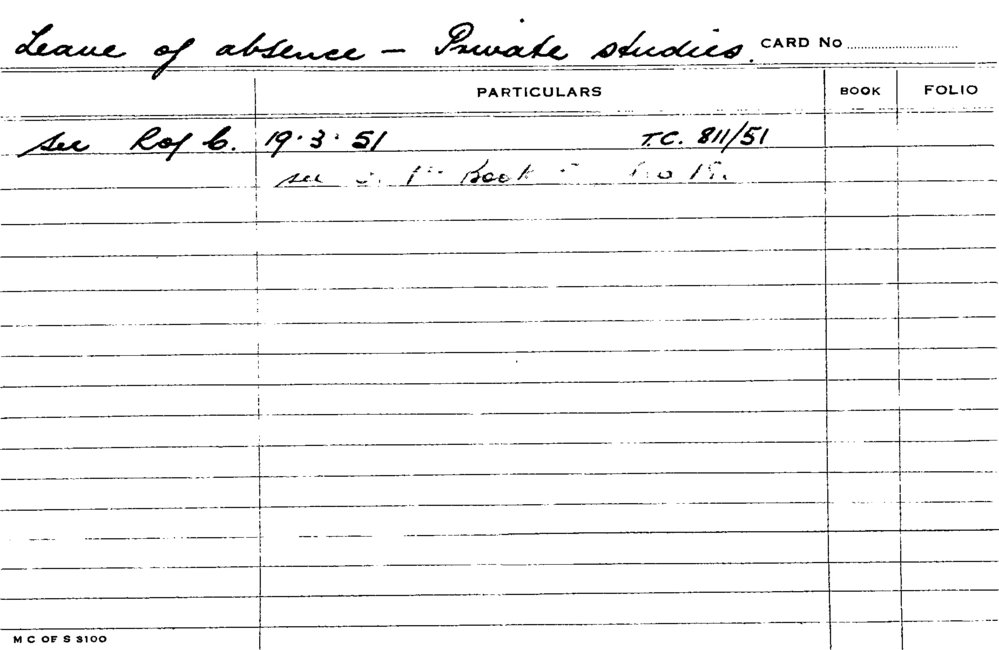 Leave of absence – Private studies. CARD No
PARTICULARS BOOK FOLIO
see R of C. 19·3·51 T.C. 811/51
see Book
M C OF S 3100